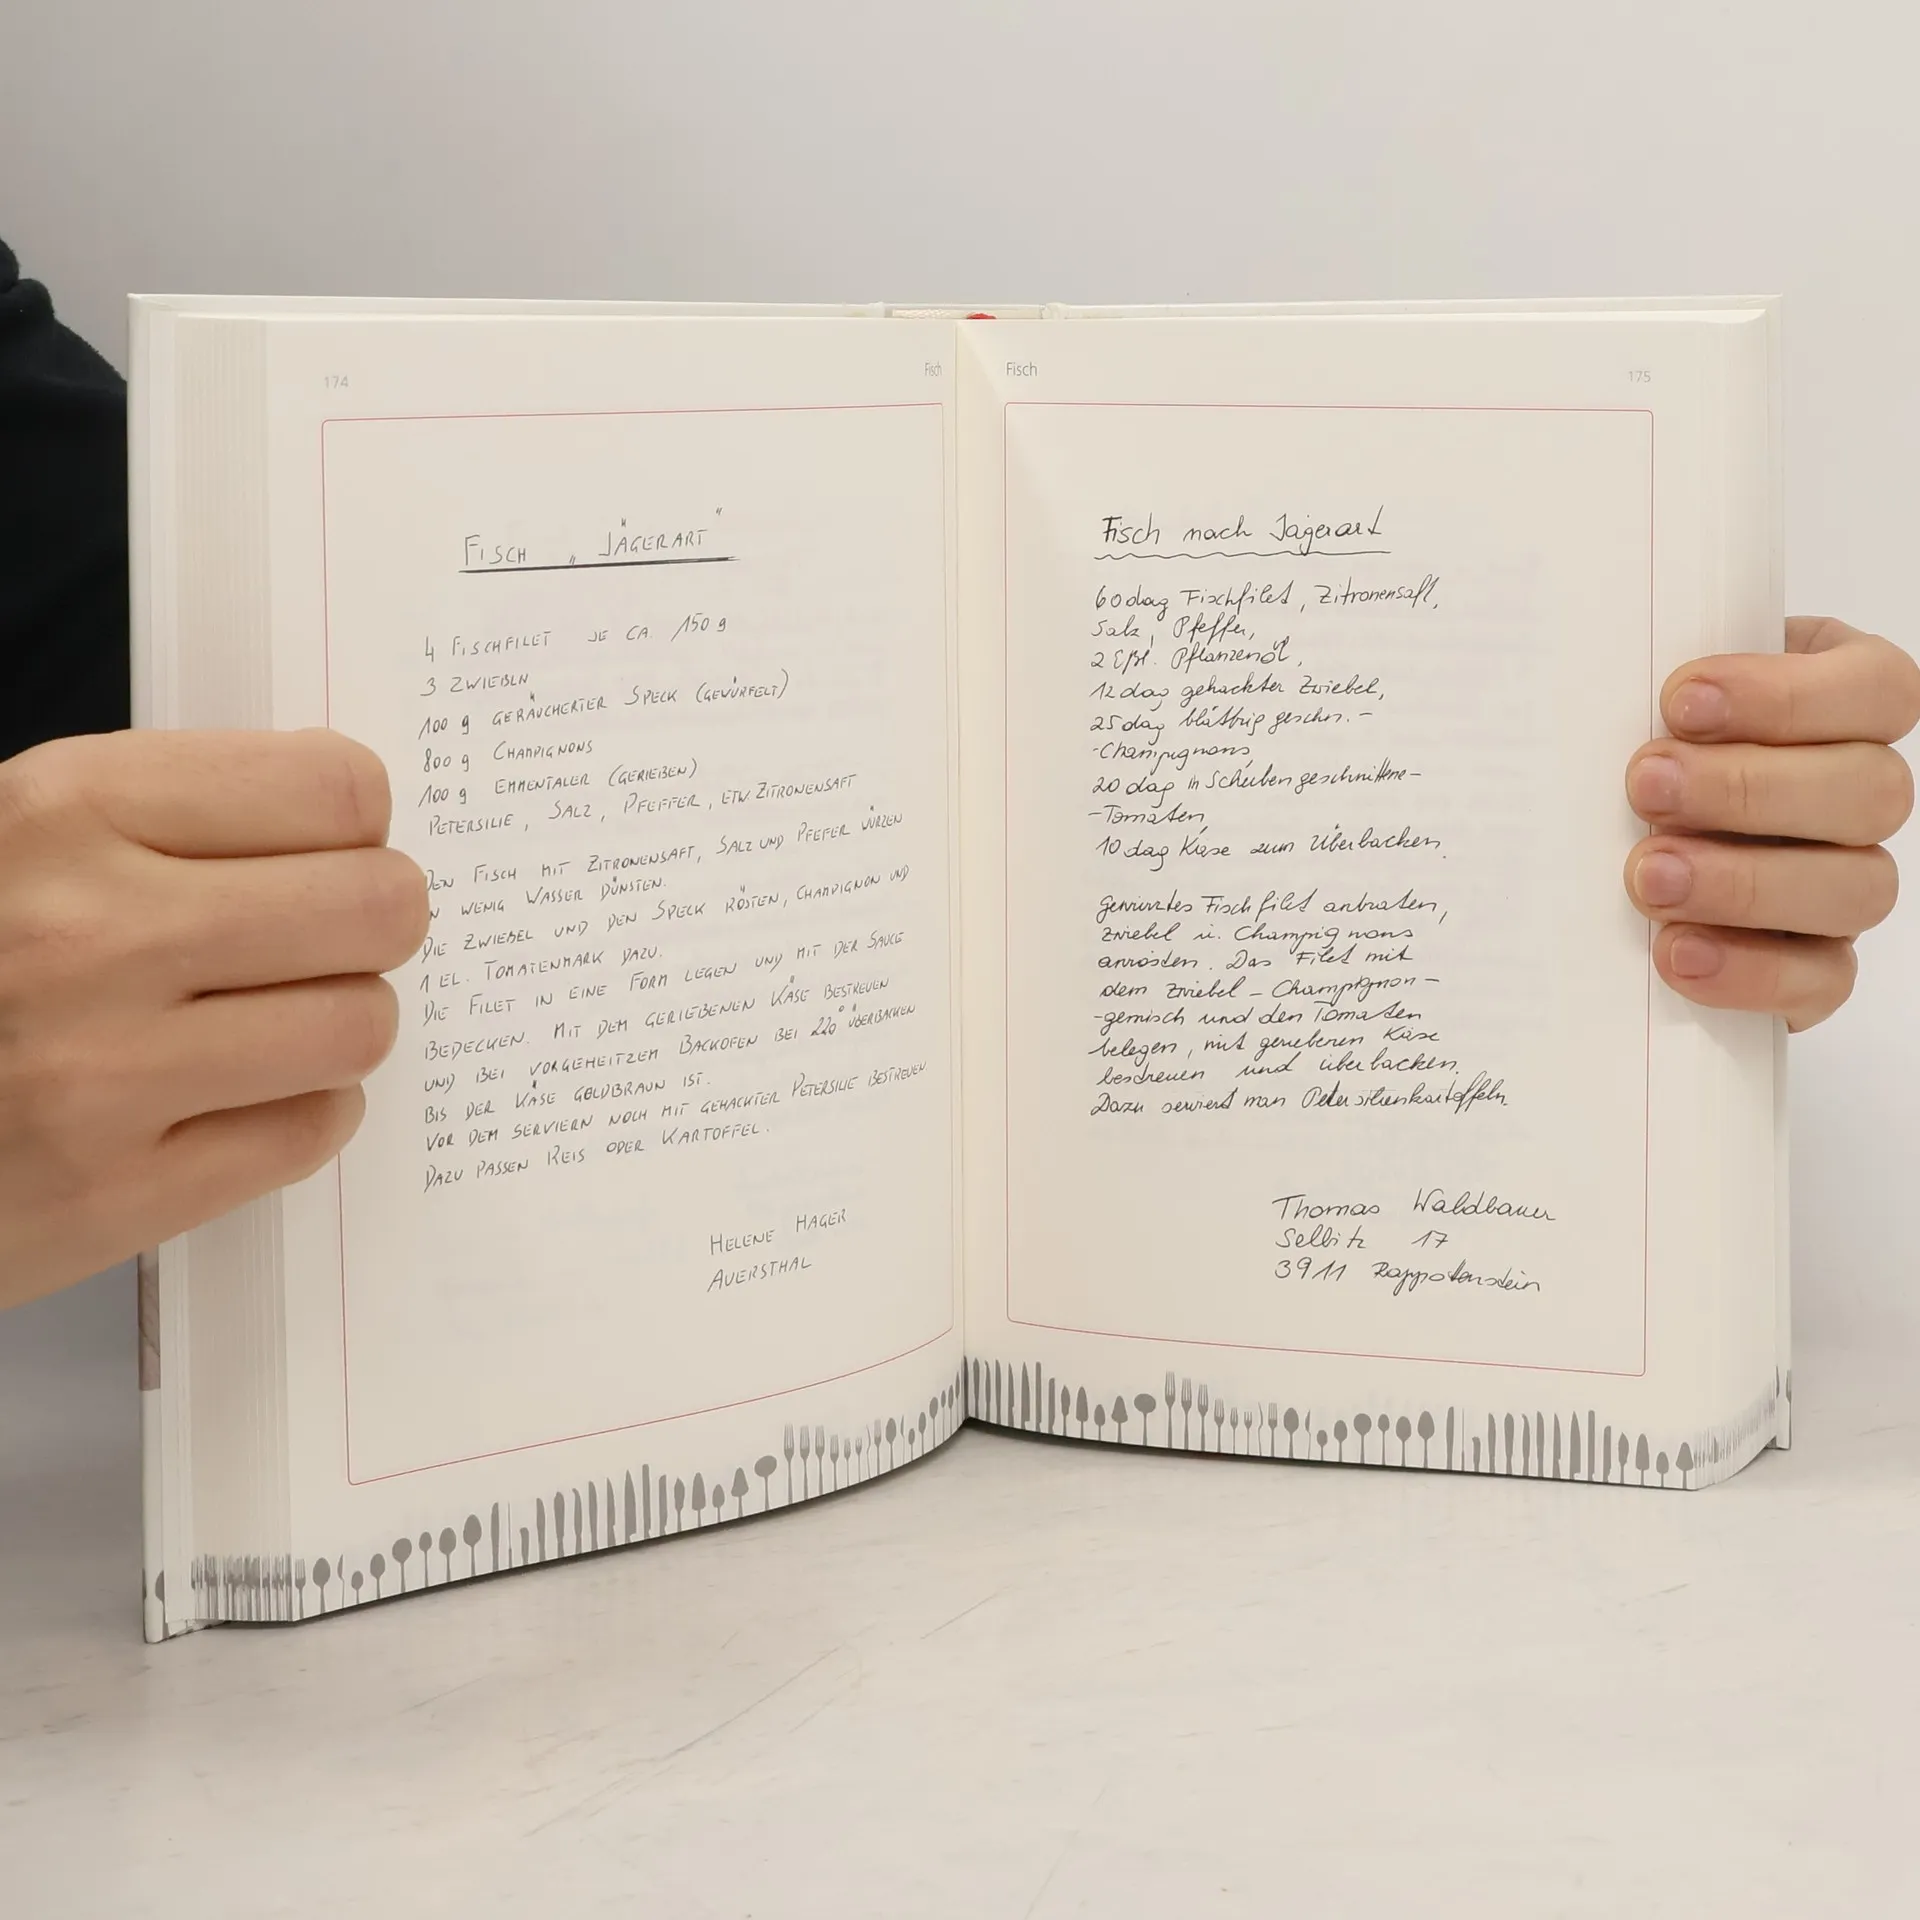 174
Fisch
FISCH „JÄGERART"
4 FISCHFILET JE CA. 150 g
3 ZWIEBLN
100 g GERÄUCHERTER SPECK (GEWÜRFELT)
800 g CHAMPIGNONS
100 g EMMENTALER (GERIEBEN)
PETERSILIE, SALZ, PFEFFER, ETW. ZITRONENSAFT
DEN FISCH MIT ZITRONENSAFT, SALZ UND PFEFER WÜRZEN
N WENIG WASSER DÜNSTEN.
DIE ZWIEBEL UND DEN SPECK RÖSTEN, CHAMPIGNON UND
1 EL. TOMATENMARK DAZU.
DIE FILET IN EINE FORM LEGEN UND MIT DER SAUCE
BEDECKEN. MIT DEM GERIEBENEN KÄSE BESTREUEN
UND BEI VORGEHEITZEM BACKOFEN BEI 220° ÜBERBACKEN
BIS DER KÄSE GOLDBRAUN IST.
VOR DEM SERVIERN NOCH MIT GEHACKTER PETERSILIE BESTREUEN
DAZU PASSEN REIS ODER KARTOFFEL.
HELENE HAGER
AUERSTHAL
Fisch
175
Fisch nach Jägerart
60 dag Fischfilet, Zitronensaft,
Salz, Pfeffer,
2 Eßl. Pflanzenöl,
12 dag gehackter Zwiebel,
25 dag blättrig geschn. -
-Champignons,
20 dag in Scheiben geschnittene -
-Tomaten,
10 dag Käse zum Überbacken.
gewürztes Fischfilet anbraten,
Zwiebel u. Champignons
anrösten. Das Filet mit
dem Zwiebel - Champignon -
-gemisch und den Tomaten
belegen, mit geriebenen Käse
bestreuen und überbacken.
Dazu serviert man Petersilienkartoffeln.
Thomas Waldbauer
Selbitz 17
3911 Rappotenstein